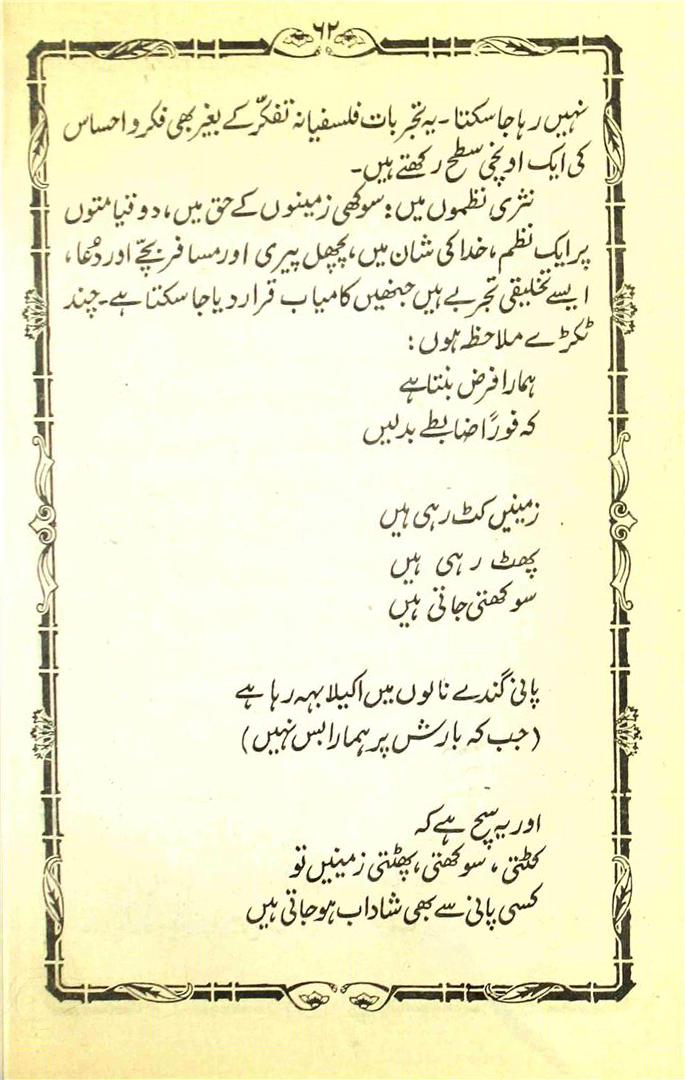 ۶۲
نہیں رہا جا سکتا۔ یہ تجربات فلسفیانہ تفکّر کے بغیر بھی فکر و احساس
کی ایک اونچی سطح رکھتے ہیں۔
نثری نظموں میں: سوکھی زمینوں کے حق میں، دو قیامتوں
پر ایک نظم، خدا کی شان میں، پچھل پیری اور مسافر بچّے اور دُعا،
ایسے تخلیقی تجربے ہیں جنھیں کامیاب قرار دیا جا سکتا ہے۔ چند
ٹکڑے ملاحظہ ہوں:
ہمارا فرض بنتا ہے
کہ فوراً ضابطے بدلیں
زمینیں کٹ رہی ہیں
پھٹ رہی ہیں
سوکھتی جاتی ہیں
پانی گندے نالوں میں اکیلا بہہ رہا ہے
(جب کہ بارش پر ہمارا بس نہیں)
اور یہ سچ ہے کہ
کٹتی، سوکھتی، پھٹتی زمینیں تو
کسی پانی سے بھی شاداب ہو جاتی ہیں